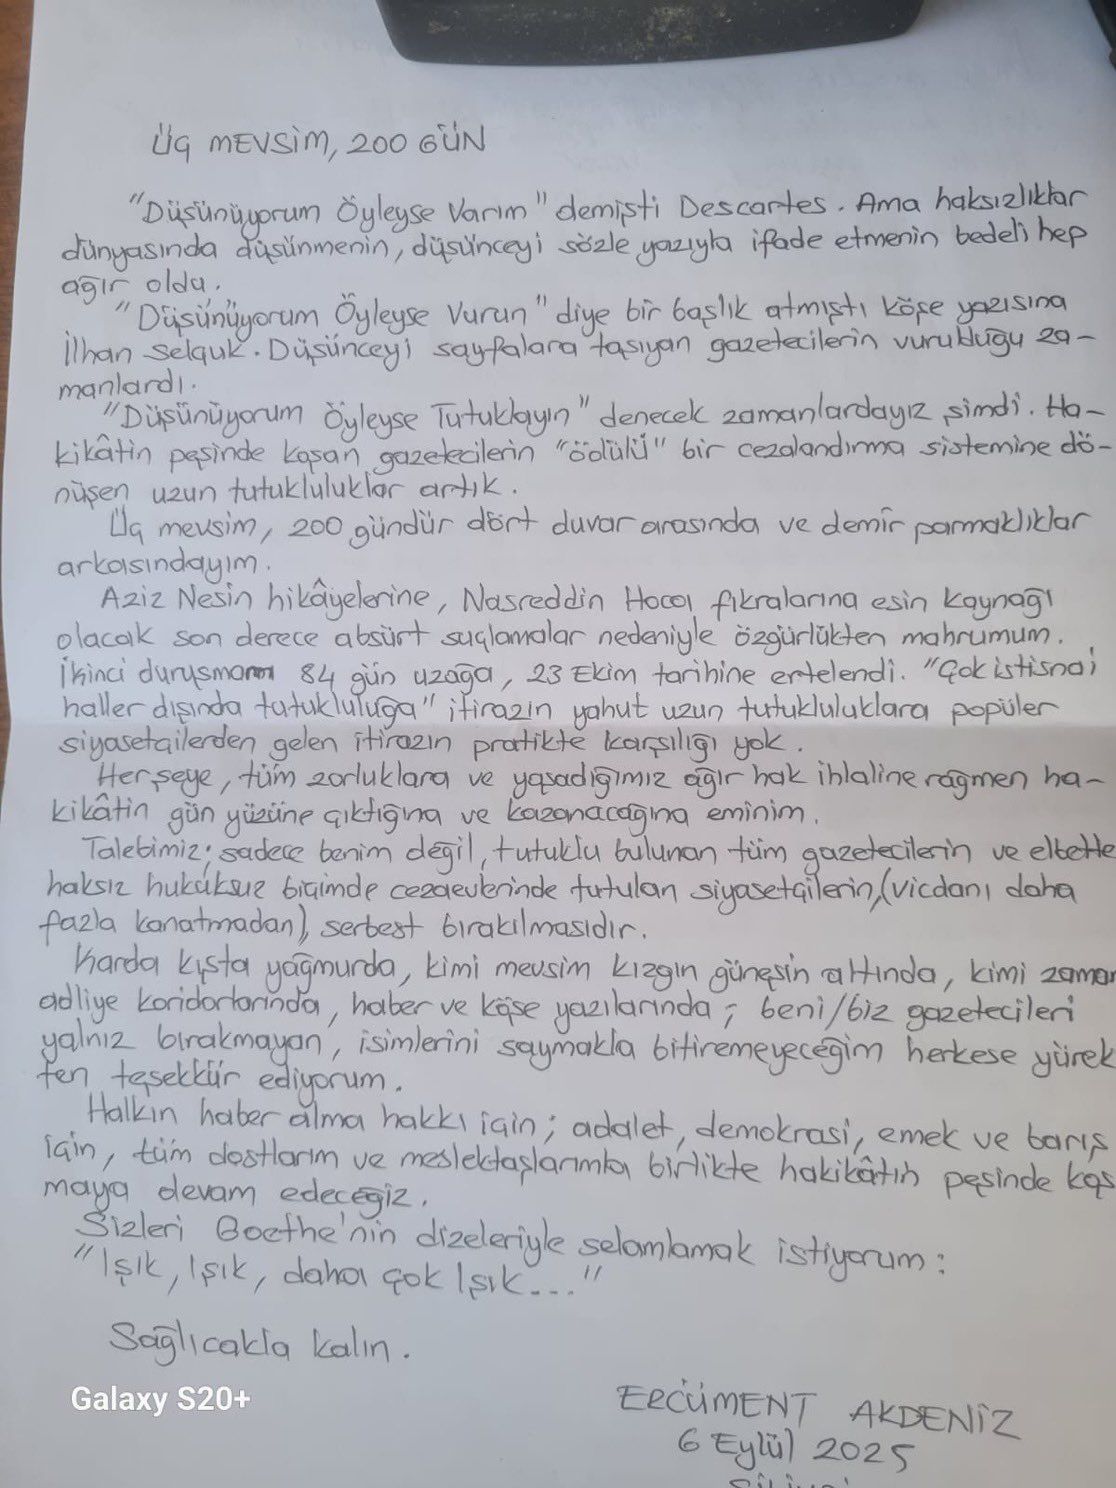 ÜÇ MEVSİM, 200 GÜN
"Düşünüyorum Öyleyse Varım" demişti Descartes. Ama haksızlıklar
dünyasında düşünmenin, düşünceyi sözle yazıyla ifade etmenin bedeli hep
ağır oldu.
"Düşünüyorum Öyleyse Vurun" diye bir başlık atmıştı köşe yazısına
İlhan Selçuk. Düşünceyi sayfalara taşıyan gazetecilerin vurulduğu za-
manlardı.
"Düşünüyorum Öyleyse Tutuklayın" denecek zamanlardayız şimdi. Ha-
kikâtin peşinde koşan gazetecilerin "ödülü" bir cezalandırma sistemine dö-
nüşen uzun tutukluluklar artık.
Üç mevsim, 200 gündür dört duvar arasında ve demir parmaklıklar
arkasındayım.
Aziz Nesin hikâyelerine, Nasreddin Hoca fıkralarına esin kaynağı
olacak son derece absürt suçlamalar nedeniyle özgürlükten mahrumum.
İkinci duruşmam 84 gün uzağa, 23 Ekim tarihine ertelendi. "Çok istisnai
haller dışında tutukluluğa" itirazın yahut uzun tutukluluklara popüler
siyasetçilerden gelen itirazın pratikte karşılığı yok.
Herşeye, tüm zorluklara ve yaşadığımız ağır hak ihlaline rağmen ha-
kikâtin gün yüzüne çıktığına ve kazanacağına eminim.
Talebimiz; sadece benim değil, tutuklu bulunan tüm gazetecilerin ve elbette
haksız hukuksuz biçimde cezaevlerinde tutulan siyasetçilerin, (vicdanı daha
fazla kanatmadan), serbest bırakılmasıdır.
Karda kışta yağmurda, kimi mevsim kızgın güneşin altında, kimi zaman
adliye koridorlarında, haber ve köşe yazılarında; beni/biz gazetecileri
yalnız bırakmayan, isimlerini saymakla bitiremeyeceğim herkese yürek
ten teşekkür ediyorum.
Halkın haber alma hakkı için; adalet, demokrasi, emek ve barış
için, tüm dostlarım ve meslektaşlarımla birlikte hakikâtin peşinde koş
maya devam edeceğiz.
Sizleri Goethe'nin dizeleriyle selamlamak istiyorum:
"Işık, Işık, daha çok Işık..."
Sağlıcakla kalın.
Galaxy S20+
ERCÜMENT AKDENİZ
6 Eylül 2025